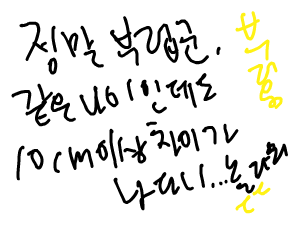 정말 부럽군.
같은 나이인데도
10cm이상 차이가
나다니...놀라워
부럽